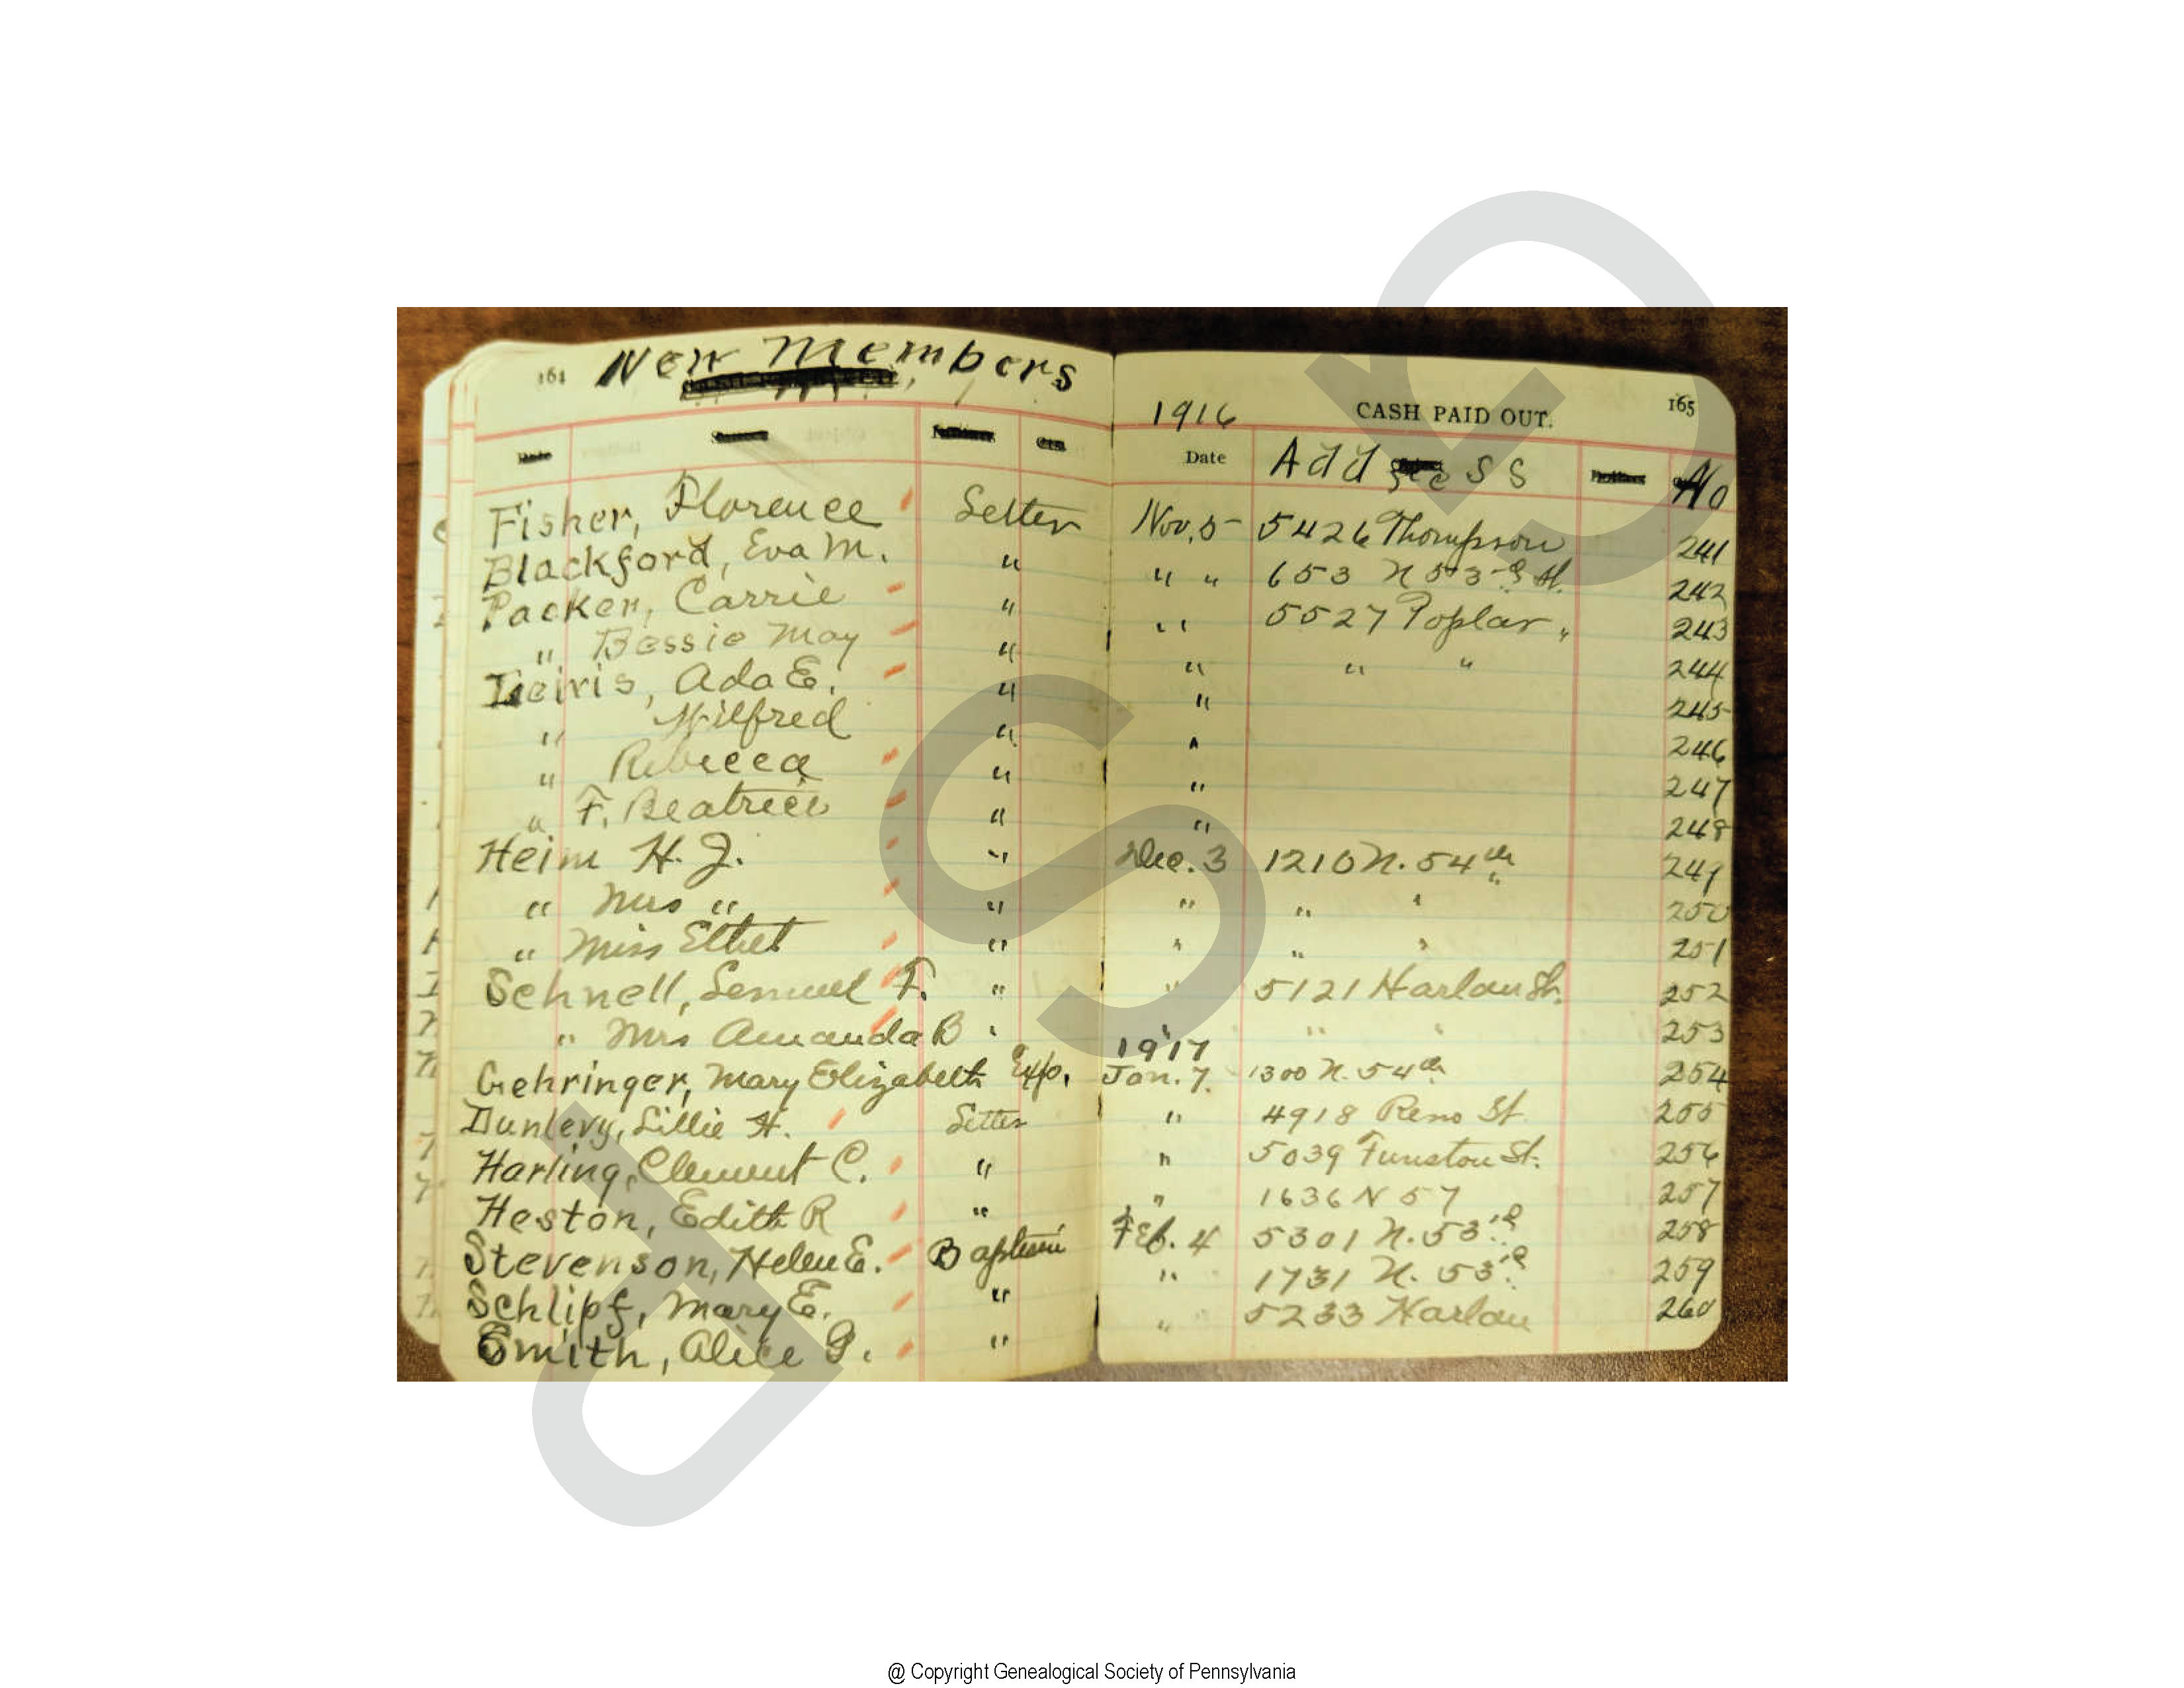 164 New Members
1916 CASH PAID OUT. 165
Date Address No
Fisher, Florence Letter Nov. 5 5426 Thompson 241
Blackford, Eva M. " " " 653 N 53rd St. 242
Packer, Carrie " " 5527 Poplar " 243
" Bessie May " " " " 244
Ada E. " " 245
" Wilfred " " 246
" Rebecca " " 247
" F. Beatrice " " 248
Heim H. J. " Dec. 3 1210 N. 54th 249
" Mrs " " " " " 250
" Miss Ethel " " " " 251
Schnell, Lemuel F. " " 5121 Harlan St. 252
" Mrs Amanda B " " " " 253
1917
Gehringer, Mary Elizabeth Exp. Jan. 7. 1300 N. 54th 254
Dunlevy, Lillie H. Letter " 4918 Reno St. 255
Harling, Clement C. " " 5039 Funston St. 256
Heston, Edith R " " 1636 N 57 257
Stevenson, Helen E. Baptism Feb. 4 5301 N. 53rd 258
Schlipf, Mary E. " " 1731 N. 53rd 259
Smith, Alice G. " " 5233 Harlan 260
GSP
@ Copyright Genealogical Society of Pennsylvania